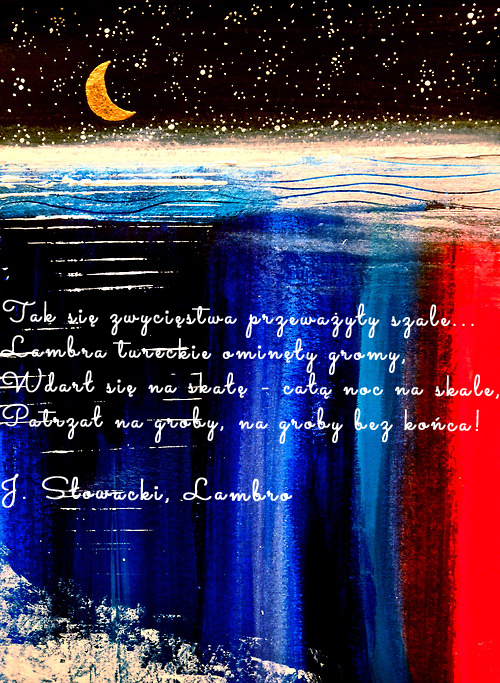 Tak się zwycięstwa przeważyły szale...
Lambra tureckie ominęły gromy,
Wdarł się na skałę - całą noc na skale,
Patrzał na groby, na groby bez końca!
J. Słowacki, Lambro